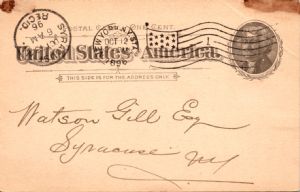 POSTAL CARD ONE CENT
United States of America.
THIS SIDE IS FOR THE ADDRESS ONLY
SYRACUSE
REC'D
OCT 12
1896
Watson Gill Esq
Syracuse
NY